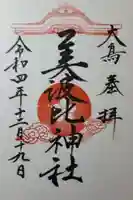 大鳥奉拝
美波比神社
令和四年十二月十九日